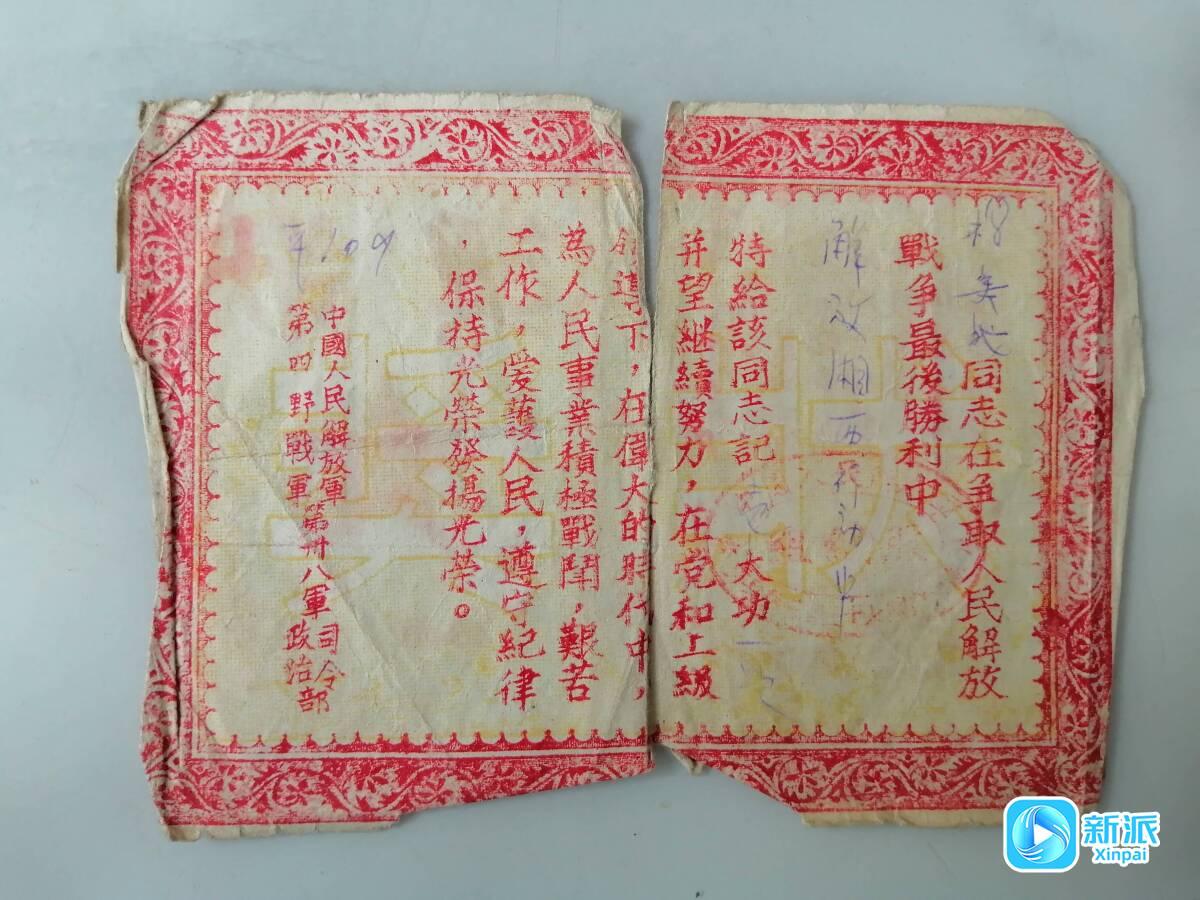 同志在争取人民解放
戰争最後勝利中
解放湘西
特給該同志記 大功一次
并望继續努力，在党和上級
領導下，在偉大的時代中，
為人民事業積極戰鬪，艱苦
工作，愛護人民，遵守紀律
，保持光榮發揚光榮。
中國人民解放軍第卅八軍司令
第四野戰軍 政治部
新派
Xinpai